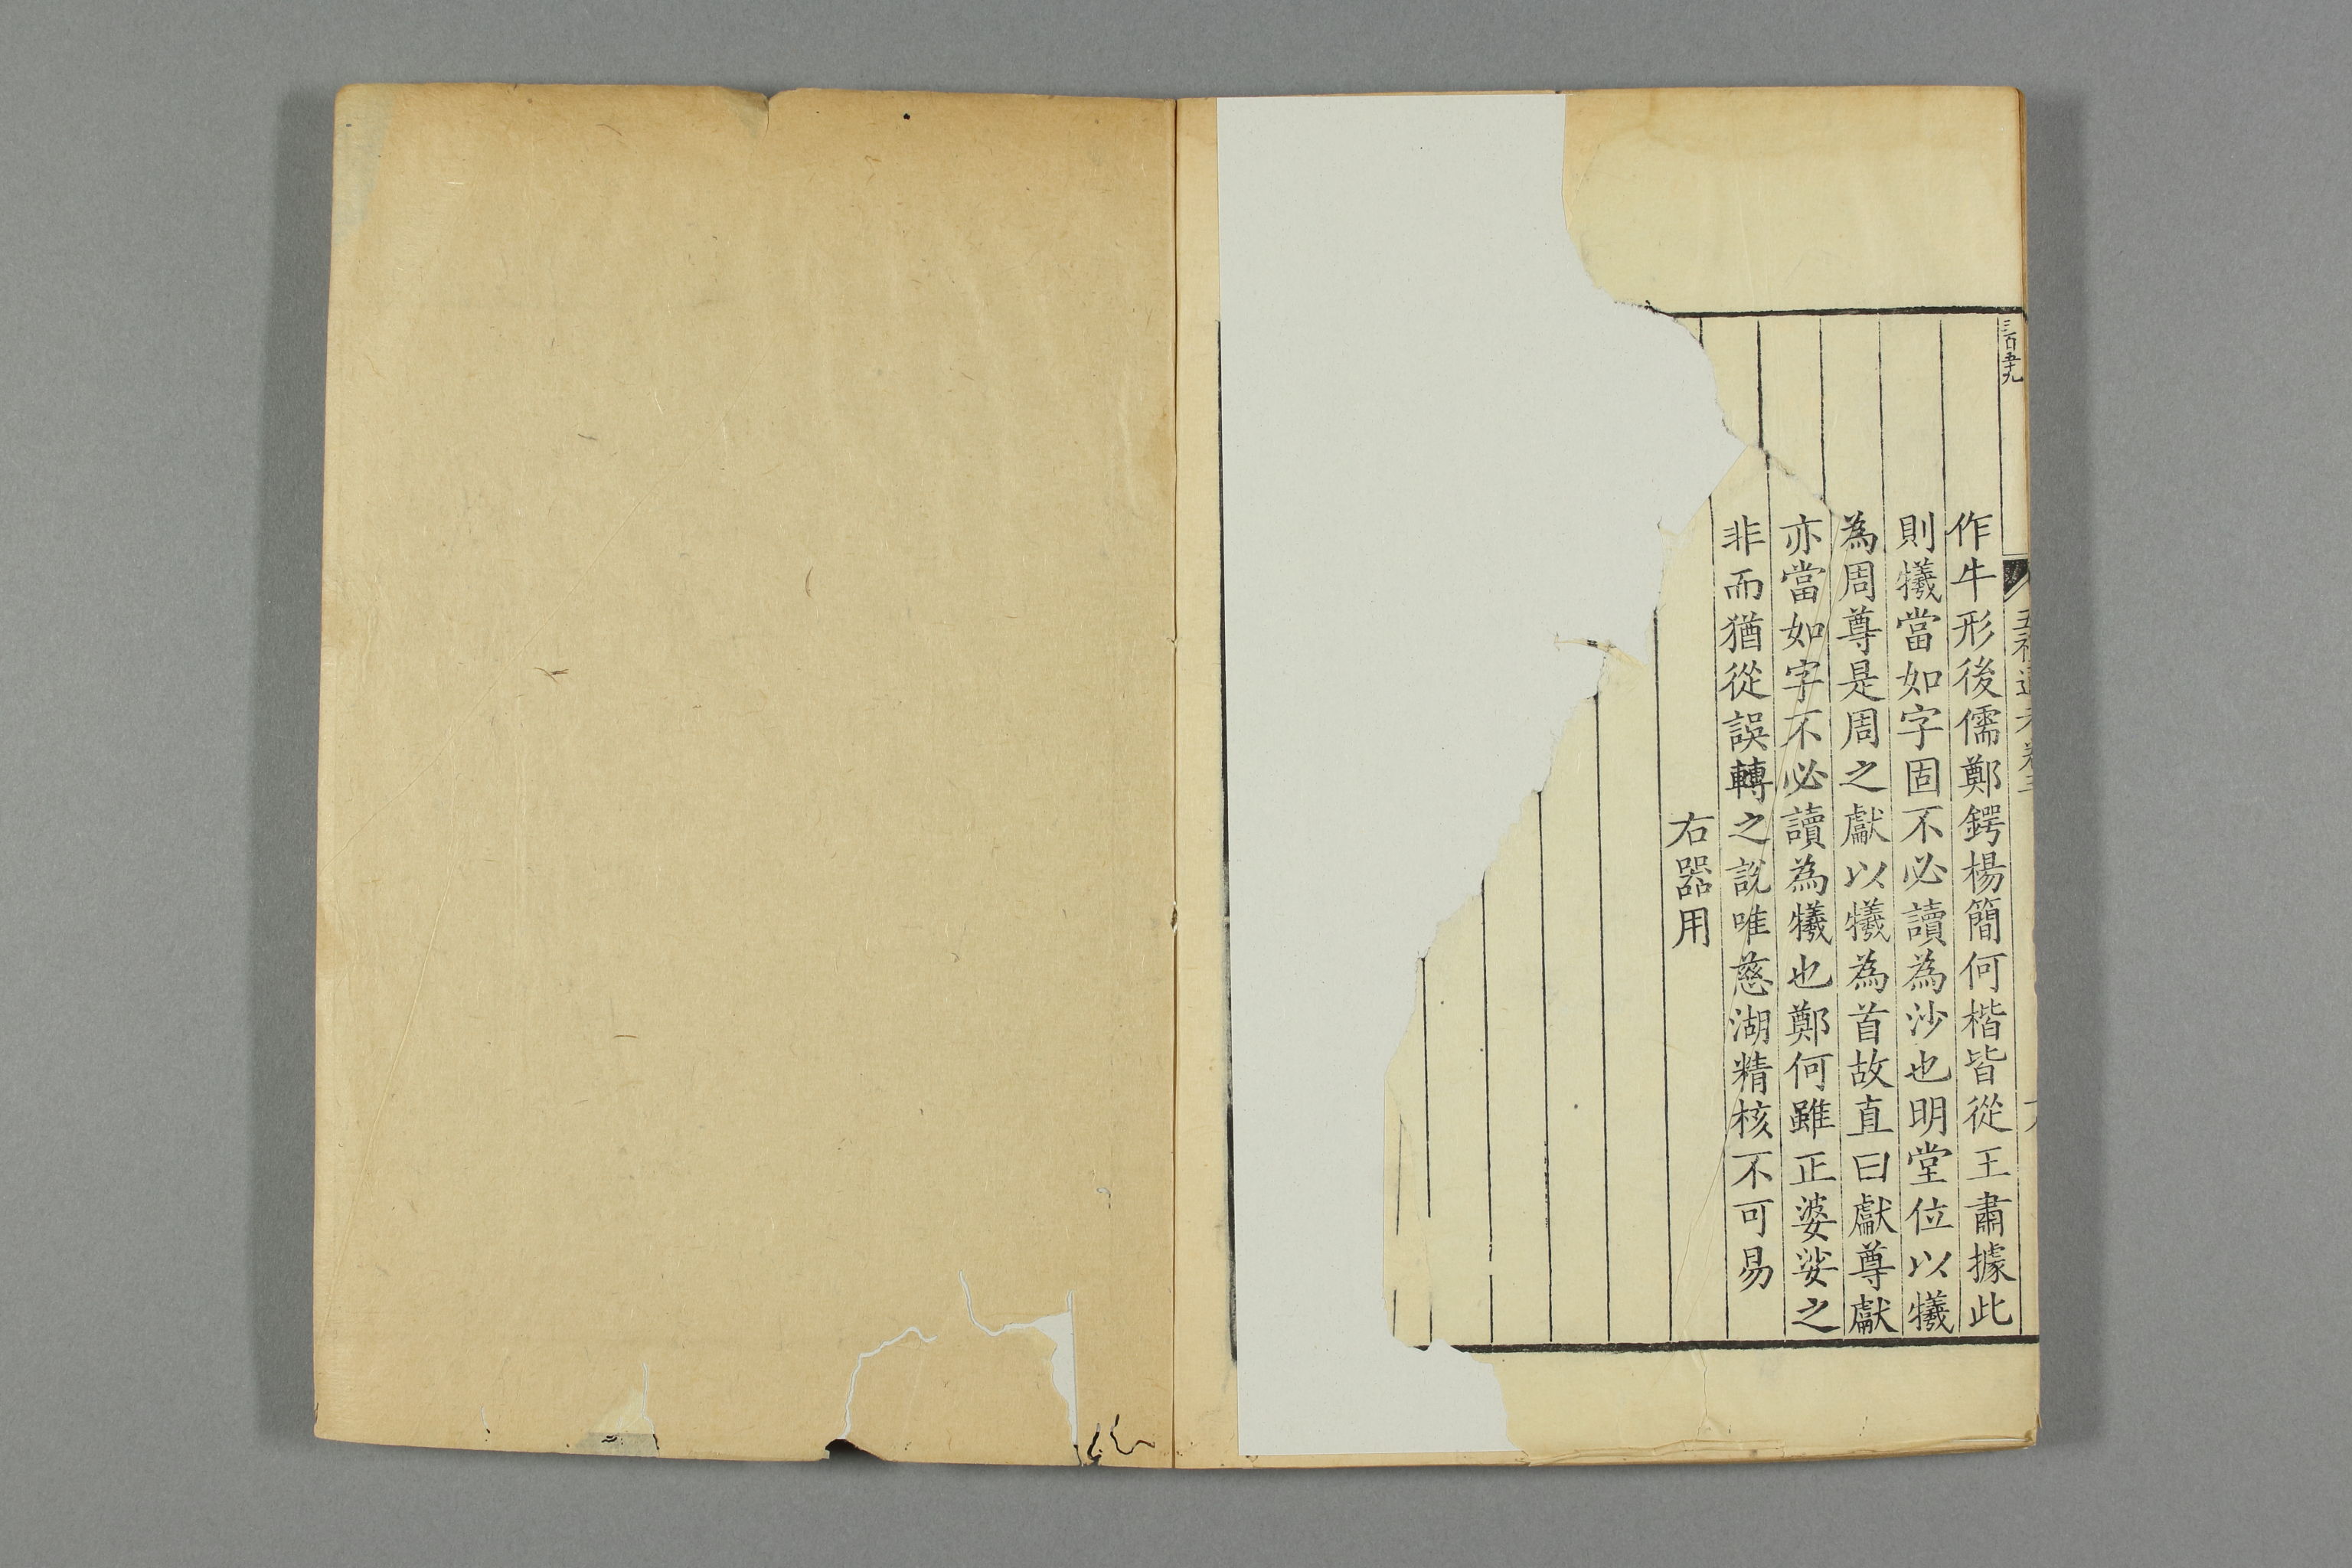 三百五十九
作牛形後儒鄭鍔楊簡何楷皆從王肅據此
則犧當如字固不必讀為沙也明堂位以犧
為周尊是周之獻以犧為首故直曰獻尊獻
亦當如字不必讀為犧也鄭何雖正婆娑之
非而猶從誤轉之說唯慈湖精核不可易
右器用